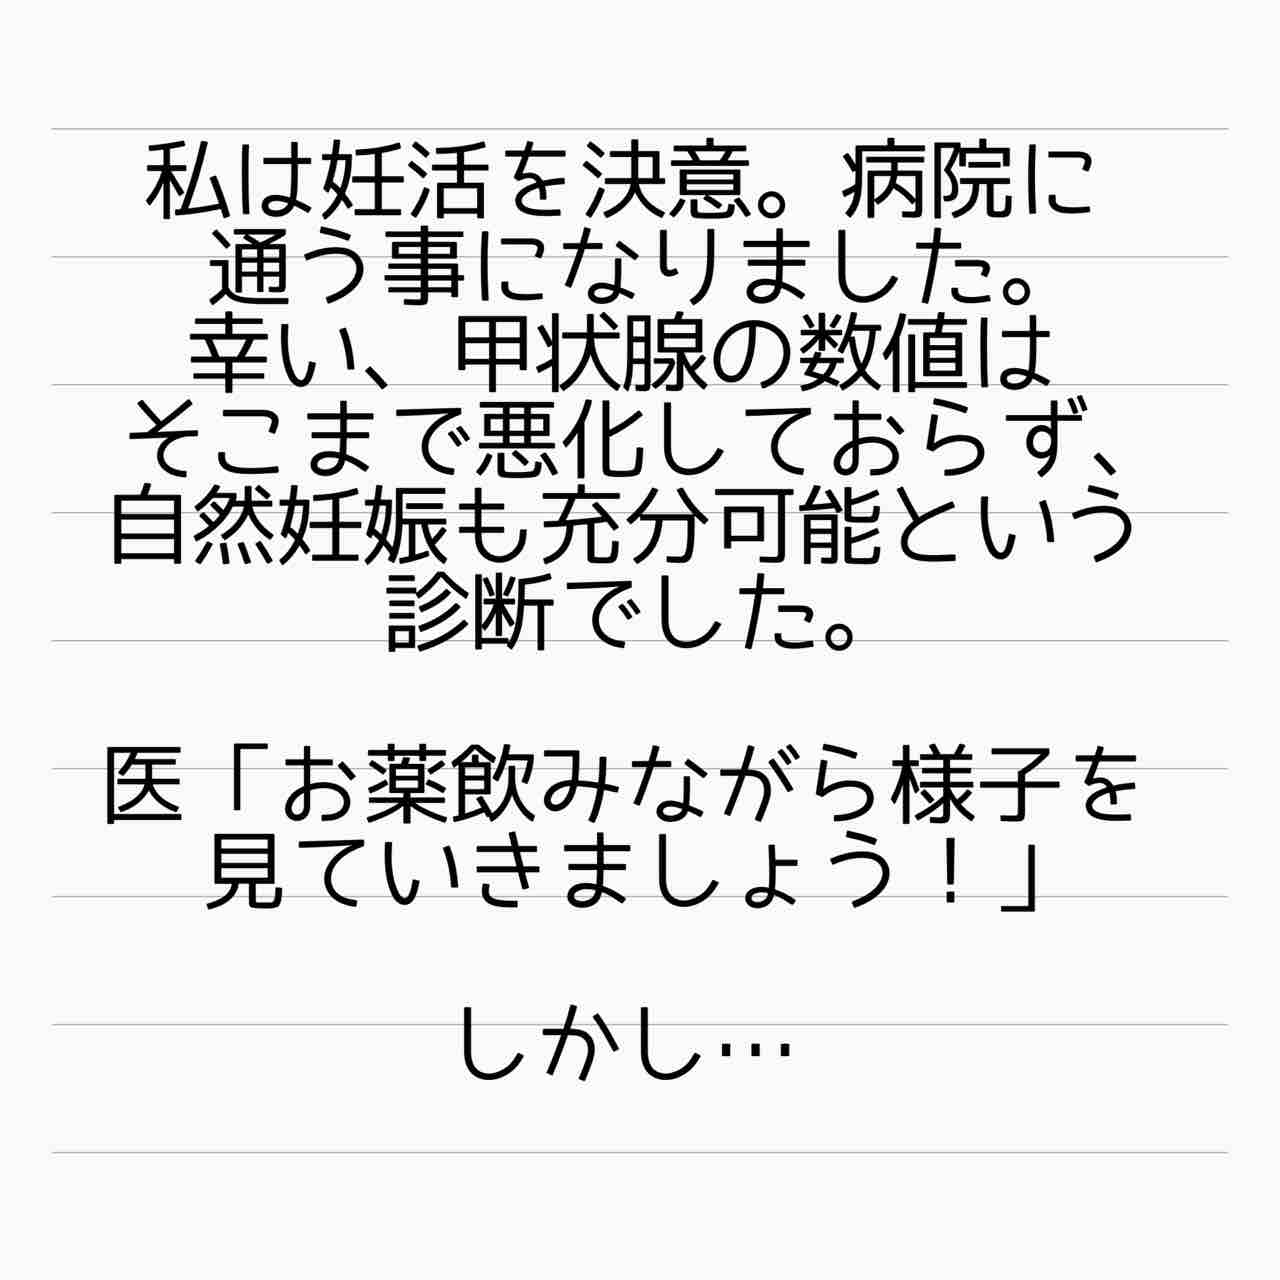 私は妊活を決意。病院に
通う事になりました。
幸い、甲状腺の数値は
そこまで悪化しておらず、
自然妊娠も充分可能という
診断でした。
医「お薬飲みながら様子を
見ていきましょう！」
しかし…